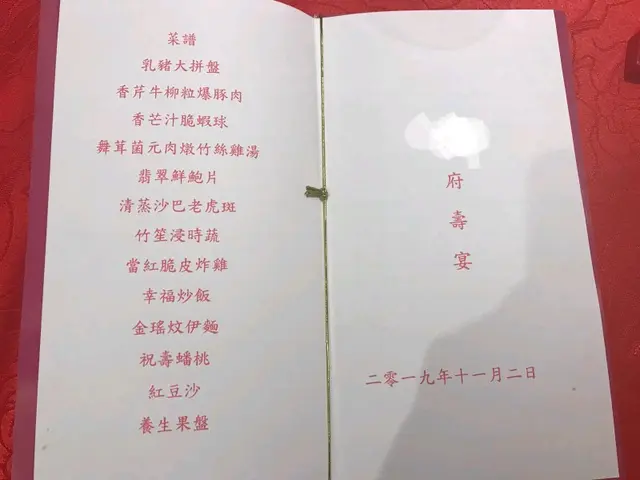 菜譜
乳豬大拼盤
香芹牛柳粒爆豚肉
香芒汁脆蝦球
舞茸菌元肉燉竹絲雞湯
翡翠鮮鮑片
清蒸沙巴老虎斑
竹笙浸時蔬
當紅脆皮炸雞
幸福炒飯
金瑤炆伊麵
祝壽蟠桃
紅豆沙
養生果盤
府
壽
宴
二零一九年十一月二日